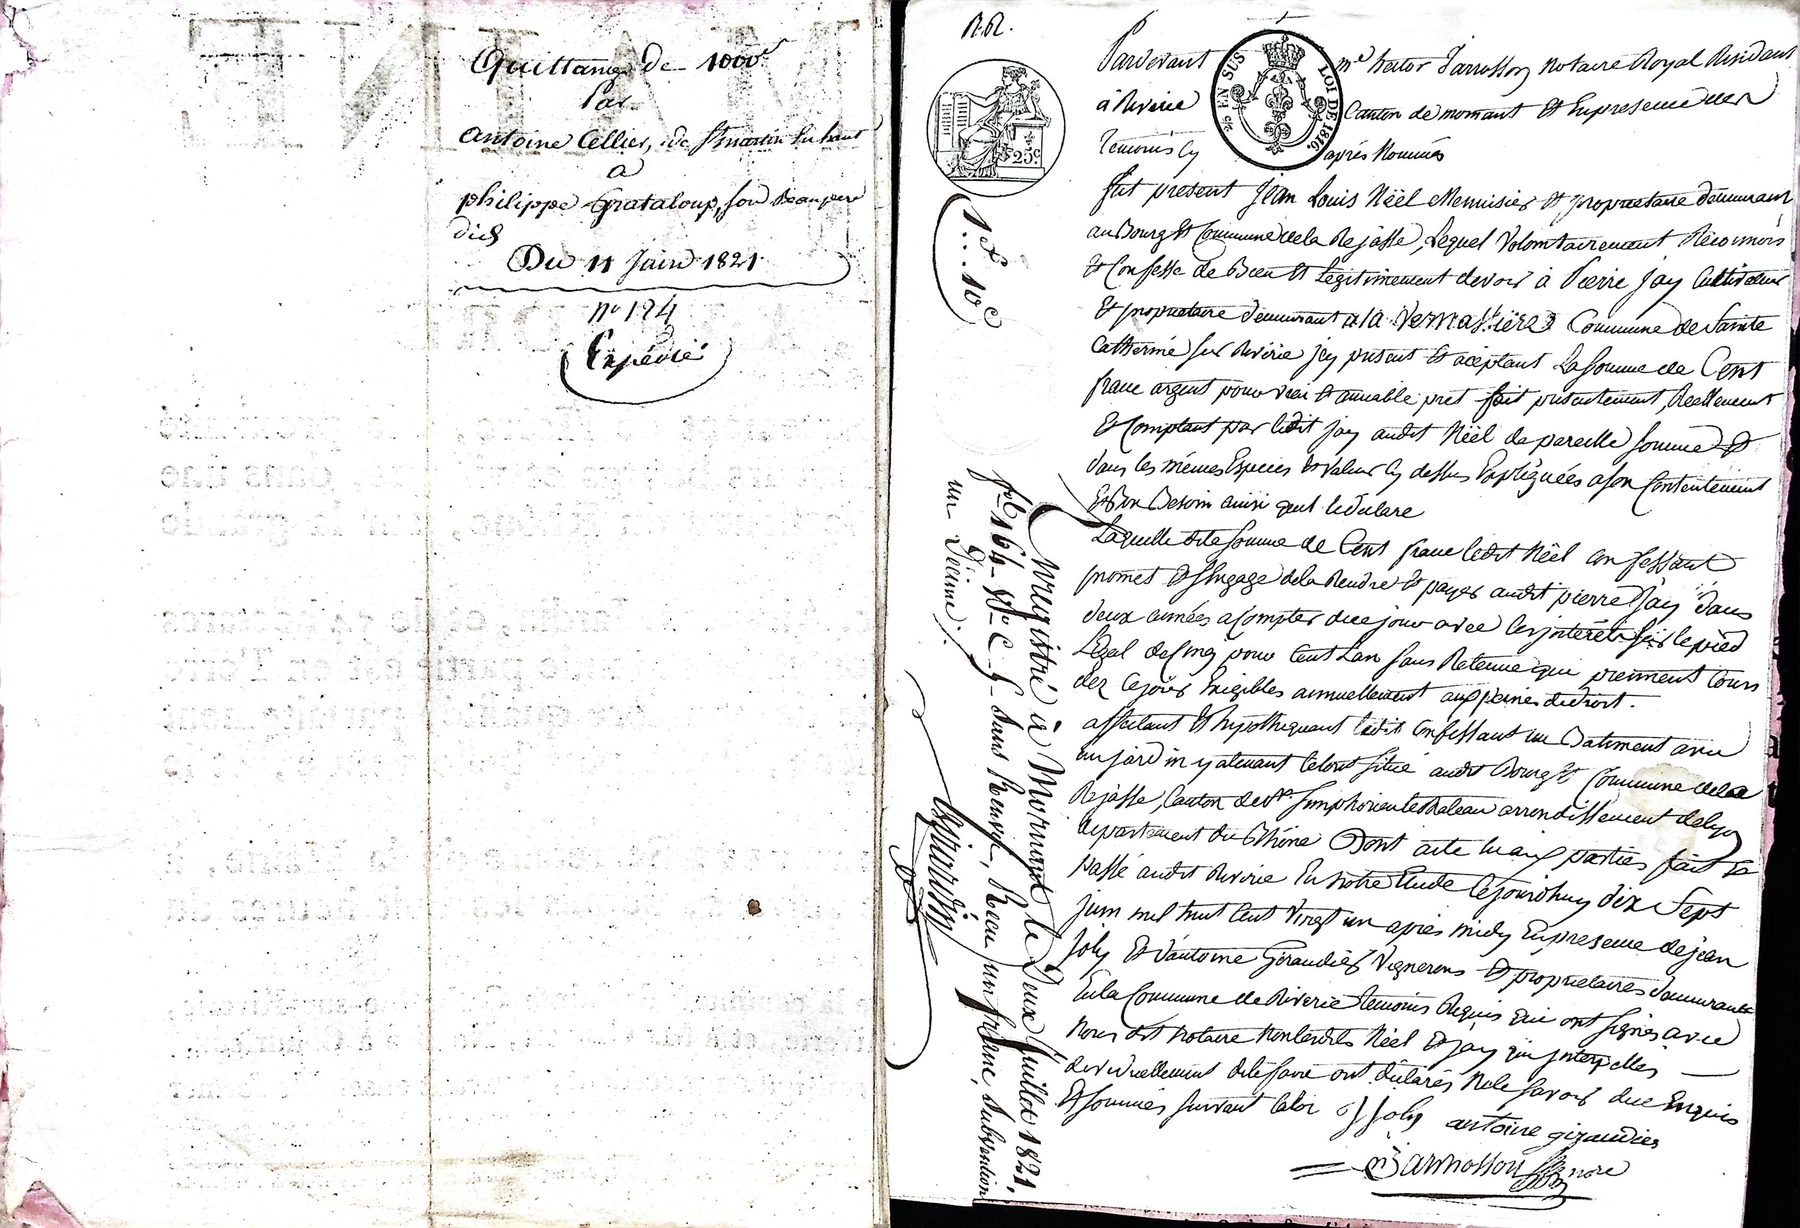 Quittance de 1000f
Par
antoine Cellier, de St martin En haut
a
philippe Grataloup, son Beaupere
dud
Du 11 Juin 1821
no 124
Expédié
R.R.
EN SUS
LOI DE 1816.
25c
1f..10c
Pardevant me hector Jarrosson notaire Royal Résidant
à Riverie Canton de mornant Et En presence des
temoins cy après Nommés
fut present Jean Louis Nëel Menuisier Et proprietaire demeurant
au Bourg Et Commune de la Rejasse, Lequel Volontairement Reconnois
Et Confesse de Bien Et Légitimement devoir à Pierre Jay Cultivateur
Et proprietaire demeurant a la Commune de Sainte
Catherine sur Riverie jcy present Et aceptant La somme de Cent
franc argent pour vrai Et amiable pret fait présentement, Réellement
Et Comptant par ledit jay audit Nëel de pareille somme Et
dans les mêmes Especes Et valeur cy dessus Expliquées a son Contentement
Et Son Besoin ainsi quil le déclare
Laquelle dite somme de Cent franc ledit Nëel confessant
promet Et s'Engage de la Rendre Et payer audit pierre Jay dans
deux années a Compter de ce jour avec les jnterêts sur le pied
Légal de Cinq pour Cent Lan sans Retenue qui prennent Cours
dez ce jour Exigibles annuellement aux peines de droit.
affectant Et hypothequant ledit Confessant un Batiment avec
un jardin y atenant le tout situé audit Bourg Et Commune de la
Rejasse, Canton de St Simphorien le Chateau arrondissement de Lyon
département du Rhône Dont acte lu aux parties fait Et
passé audit Riverie En notre Etude Cejourdhuy dix Sept
juin mil huit Cent Vingt un après midy En presence de jean
joly Et d'antoine Giraudier Vignerons Et proprietaires demeurants
En la Commune de Riverie temoins Requis qui ont signés avec
Nous dit notaire Non lesdits Nëel Et Jay qui jnterpellés
de le faire ont déclarés Ne le savoir de ce Enquis
Et sommés suivant la loi
J Joly antoine giraudier
Jarrosson nore
Enregistré à Mornant le Deux Juillet 1821,
fo 164 Vo C 5 Sans Renvoi, Recu un franc, Subvention
un Décime.